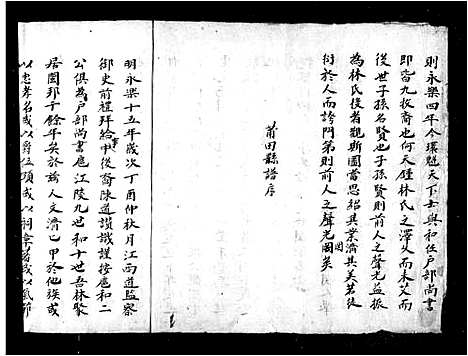 則永樂四年今環魁天下士與和任戶部尚書
即宙九牧裔也何天鍾林氏之澤久而未艾而
後世子孫名賢也子孫賢則前人之聲光益振
為林氏後者觀斯圖當思紹其業濟其美若徒
衒於人而誇門第則前人之聲光圖矣
莆田縣譜序
明永樂十五年歲次丁酉仲秋月江南道監察
御史前禮拜給事中後裔陳道讚識謹按唐和二
公俱為戶部尚書唐江陵九世和十世吾林聚
居國邦千餘年矣於茲人文濟已甲於他族或
以忠孝名或以爵位項或以詞章著或以氣節